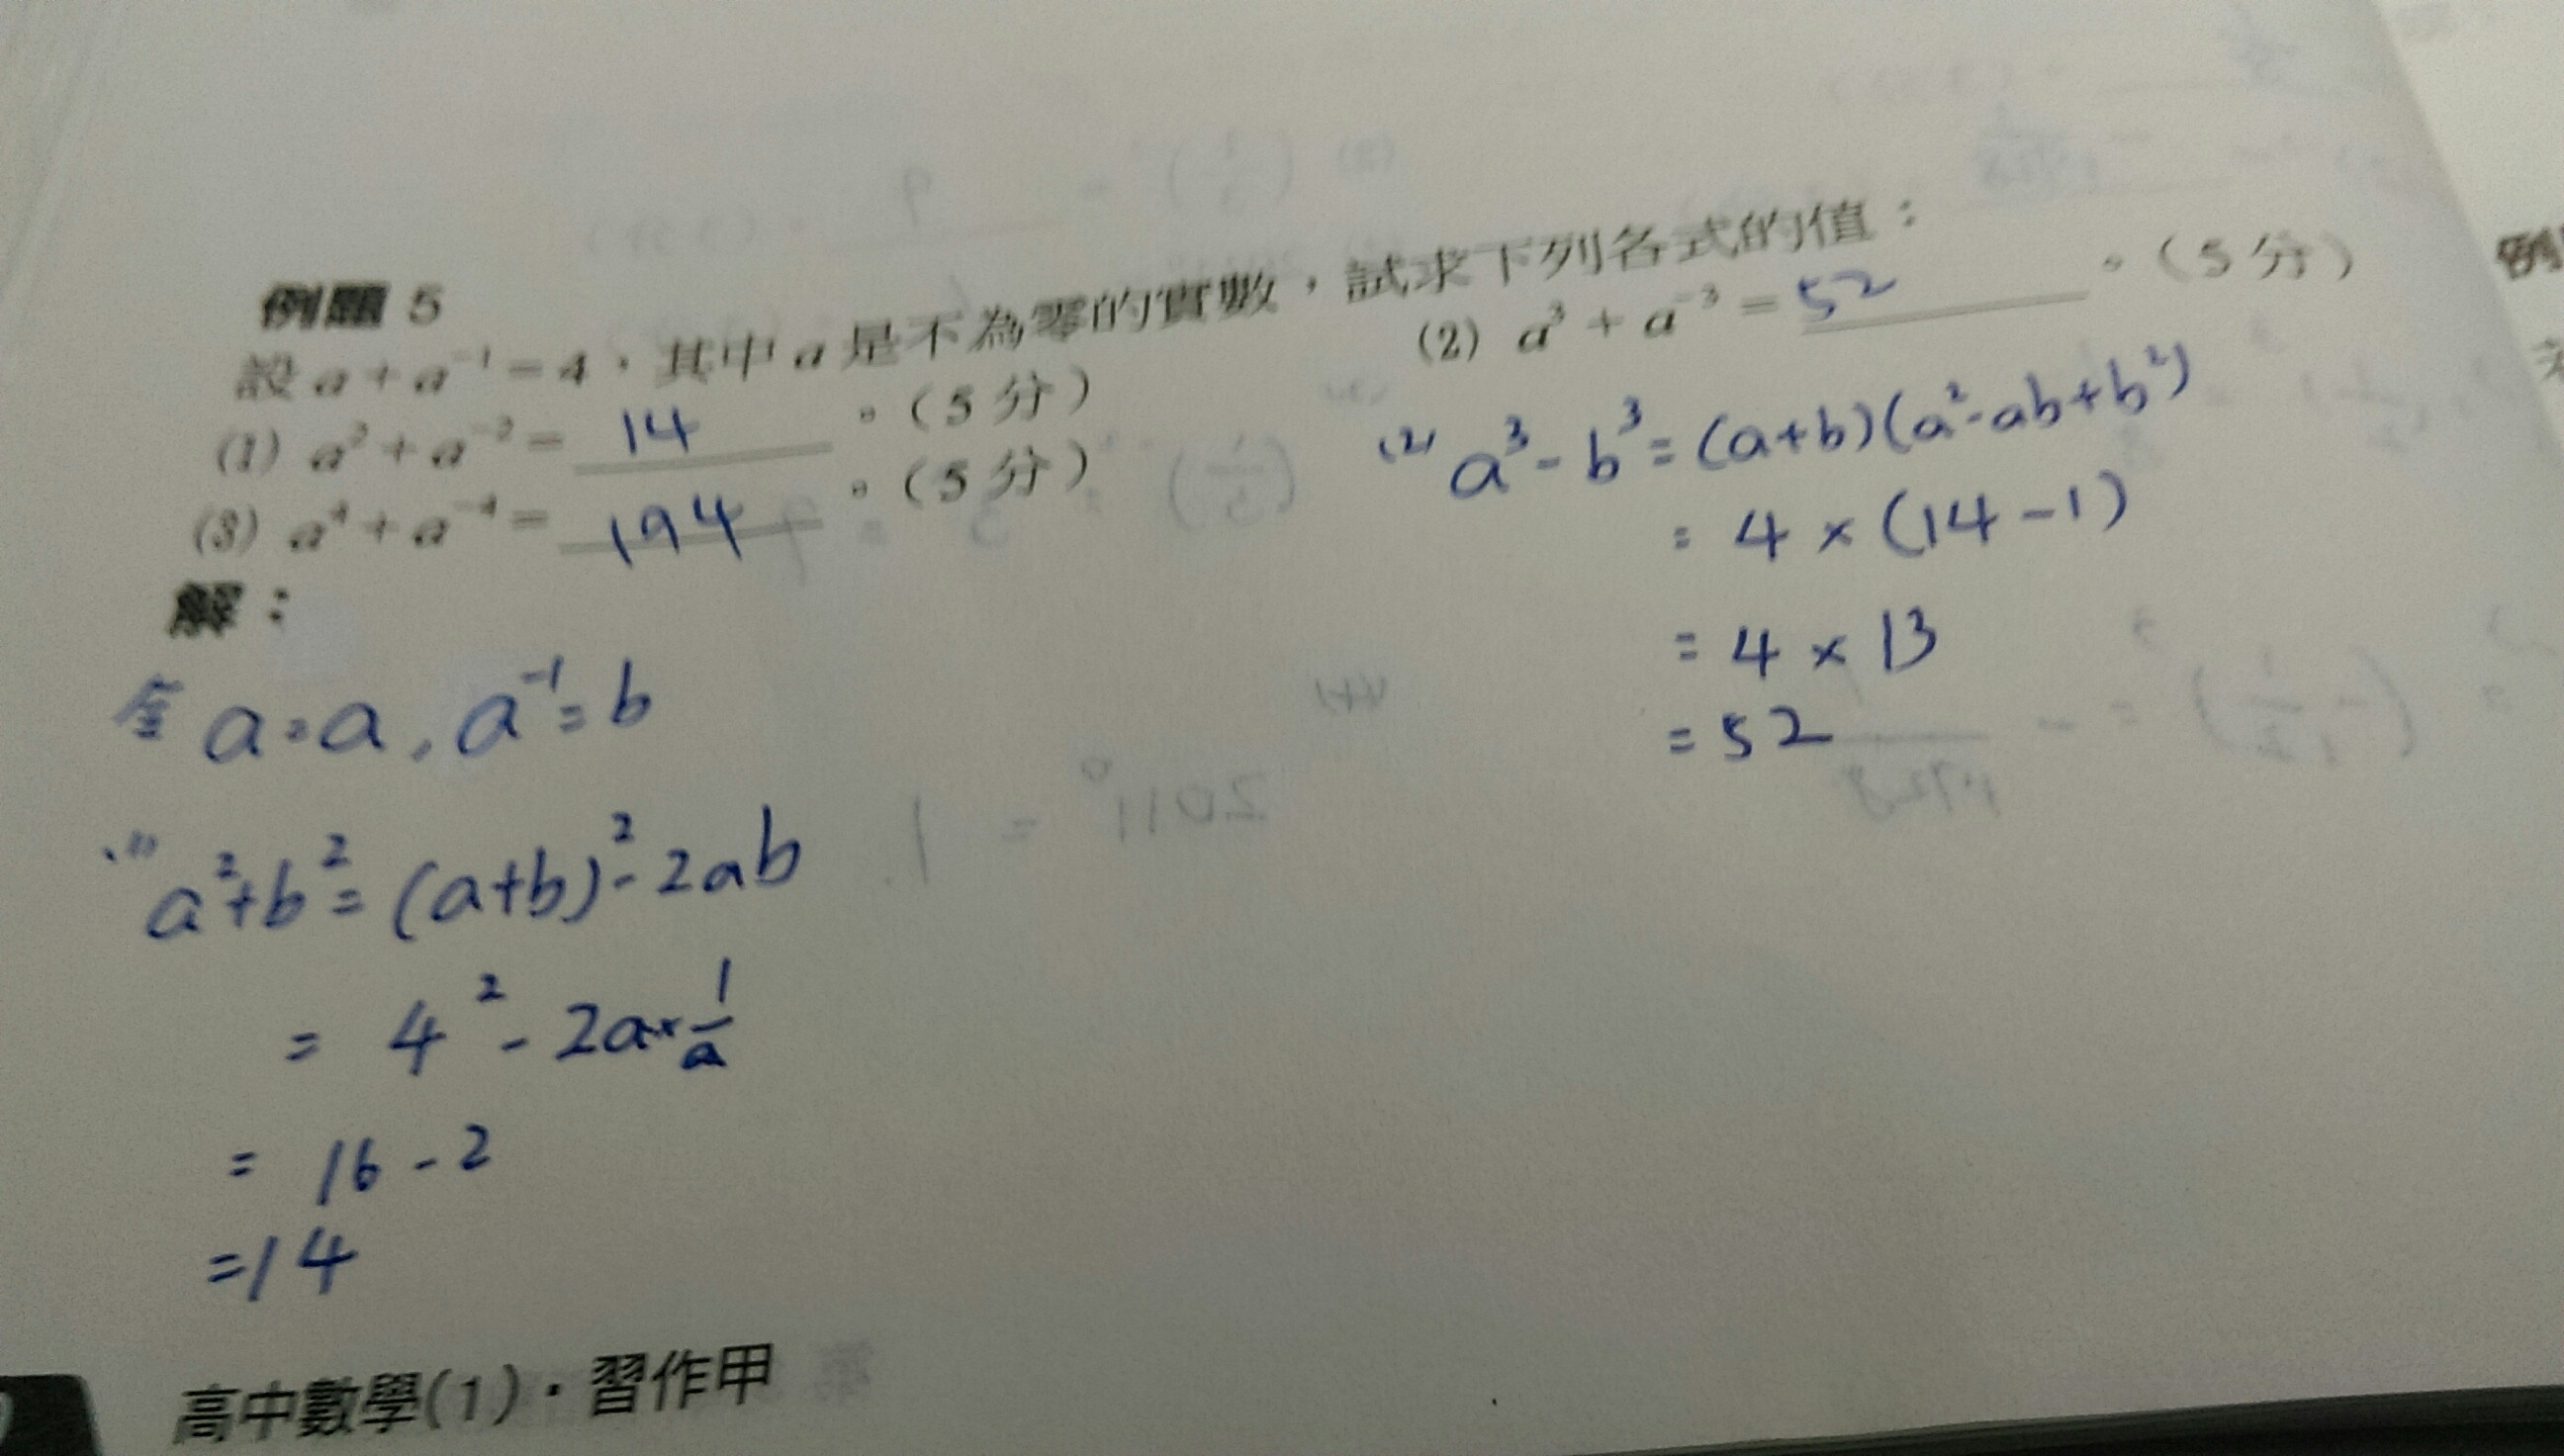 例題 5
設 a + a⁻¹ = 4，其中 a 是不為零的實數，試求下列各式的值：
(1) a² + a⁻² = 14 。（5 分）
(2) a³ + a⁻³ = 52 。（5 分）
(3) a⁴ + a⁻⁴ = 194 。（5 分）
解：
令 a=a, a⁻¹=b
(1) a²+b²=(a+b)²-2ab
= 4² - 2a×1/a
= 16 - 2
=14
(2) a³-b³=(a+b)(a²-ab+b²)
= 4 × (14-1)
= 4 × 13
= 52
高中數學(1)・習作甲
例